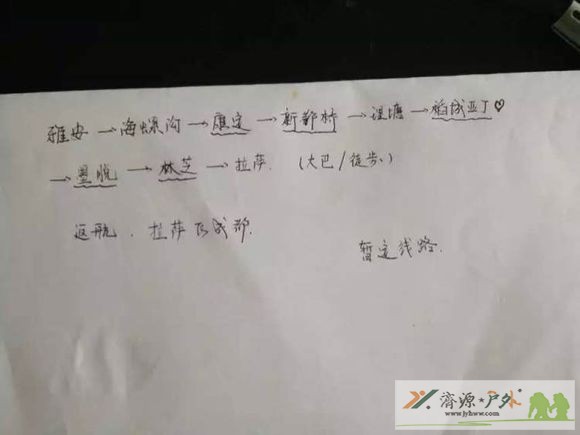 雅安→海螺沟→康定→新都桥→理塘→稻城亚丁♡
→墨脱→林芝→拉萨.(大巴/徒步、)
返航.拉萨飞成都.
暂定线路.
济源★户外
www.jyhww.com